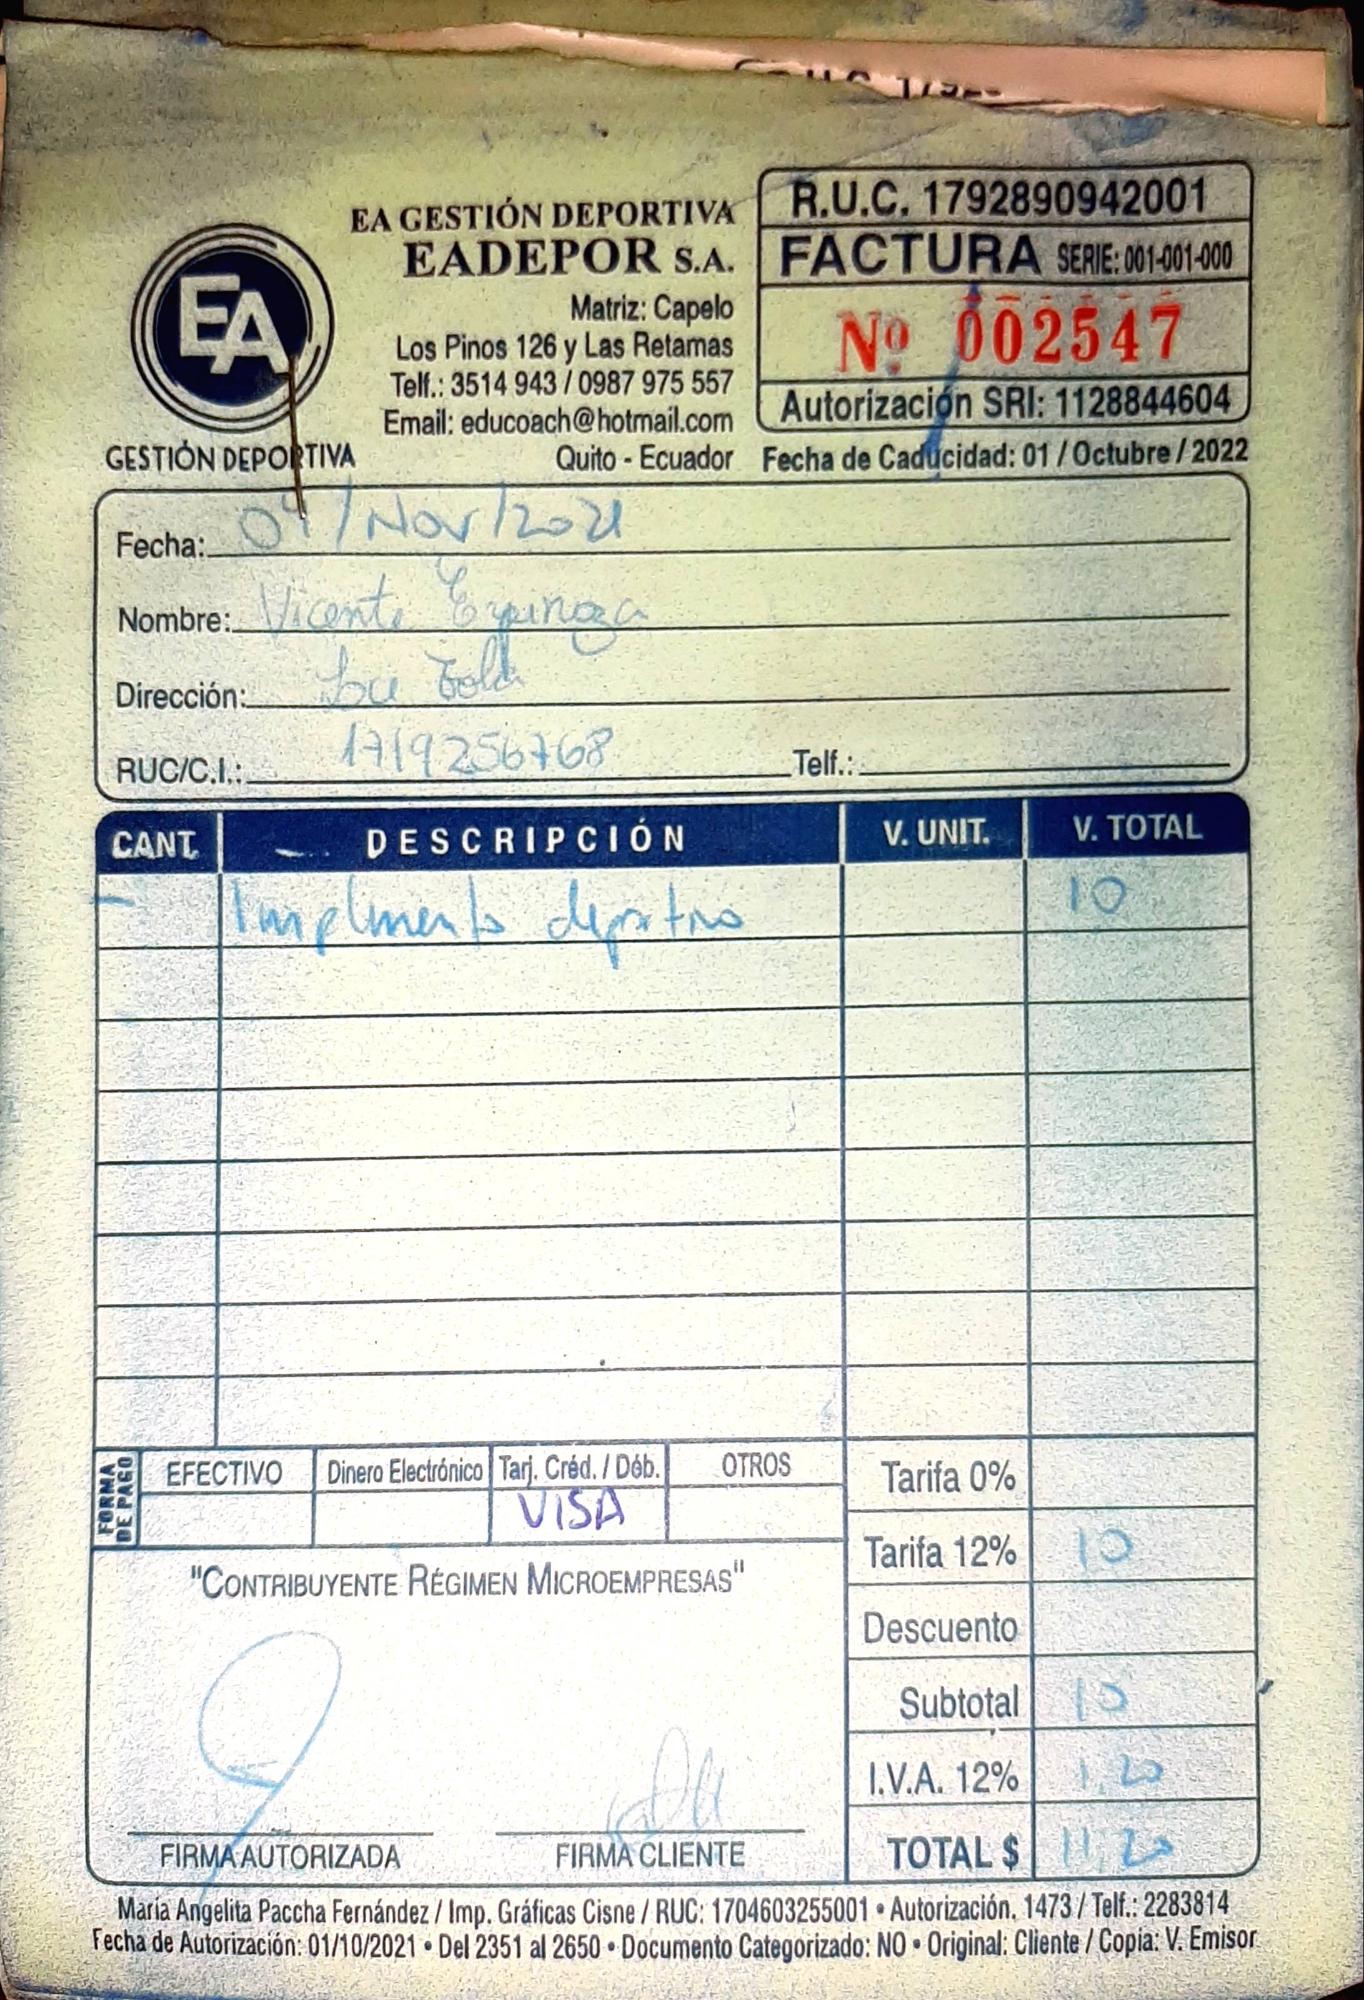 R.U.C. 1792
EA GESTIÓN DEPORTIVA
EADEPOR S.A.
Matriz: Capelo
Los Pinos 126 y Las Retamas
Telf.: 3514 943 / 0987 975 557
Email: educoach@hotmail.com
Quito - Ecuador
EA
GESTIÓN DEPORTIVA
R.U.C. 1792890942001
FACTURA SERIE: 001-001-000
Nº 002547
Autorización SRI: 1128844604
Fecha de Caducidad: 01 / Octubre / 2022
Fecha: 04/Nov/2021
Nombre: Vicente Espinoza
Dirección:
RUC/C.I.: 1719256768 Telf.:
CANT. DESCRIPCIÓN V. UNIT. V. TOTAL
Implemento deportivo 10
FORMA DE PAGO
EFECTIVO Dinero Electrónico Tarj. Créd. / Déb. OTROS
VISA
Tarifa 0%
Tarifa 12% 10
Descuento
Subtotal 10
I.V.A. 12% 1,20
TOTAL $ 11,20
"CONTRIBUYENTE RÉGIMEN MICROEMPRESAS"
FIRMA AUTORIZADA FIRMA CLIENTE
María Angelita Paccha Fernández / Imp. Gráficas Cisne / RUC: 1704603255001 • Autorización. 1473 / Telf.: 2283814
Fecha de Autorización: 01/10/2021 • Del 2351 al 2650 • Documento Categorizado: NO • Original: Cliente / Copia: V. Emisor